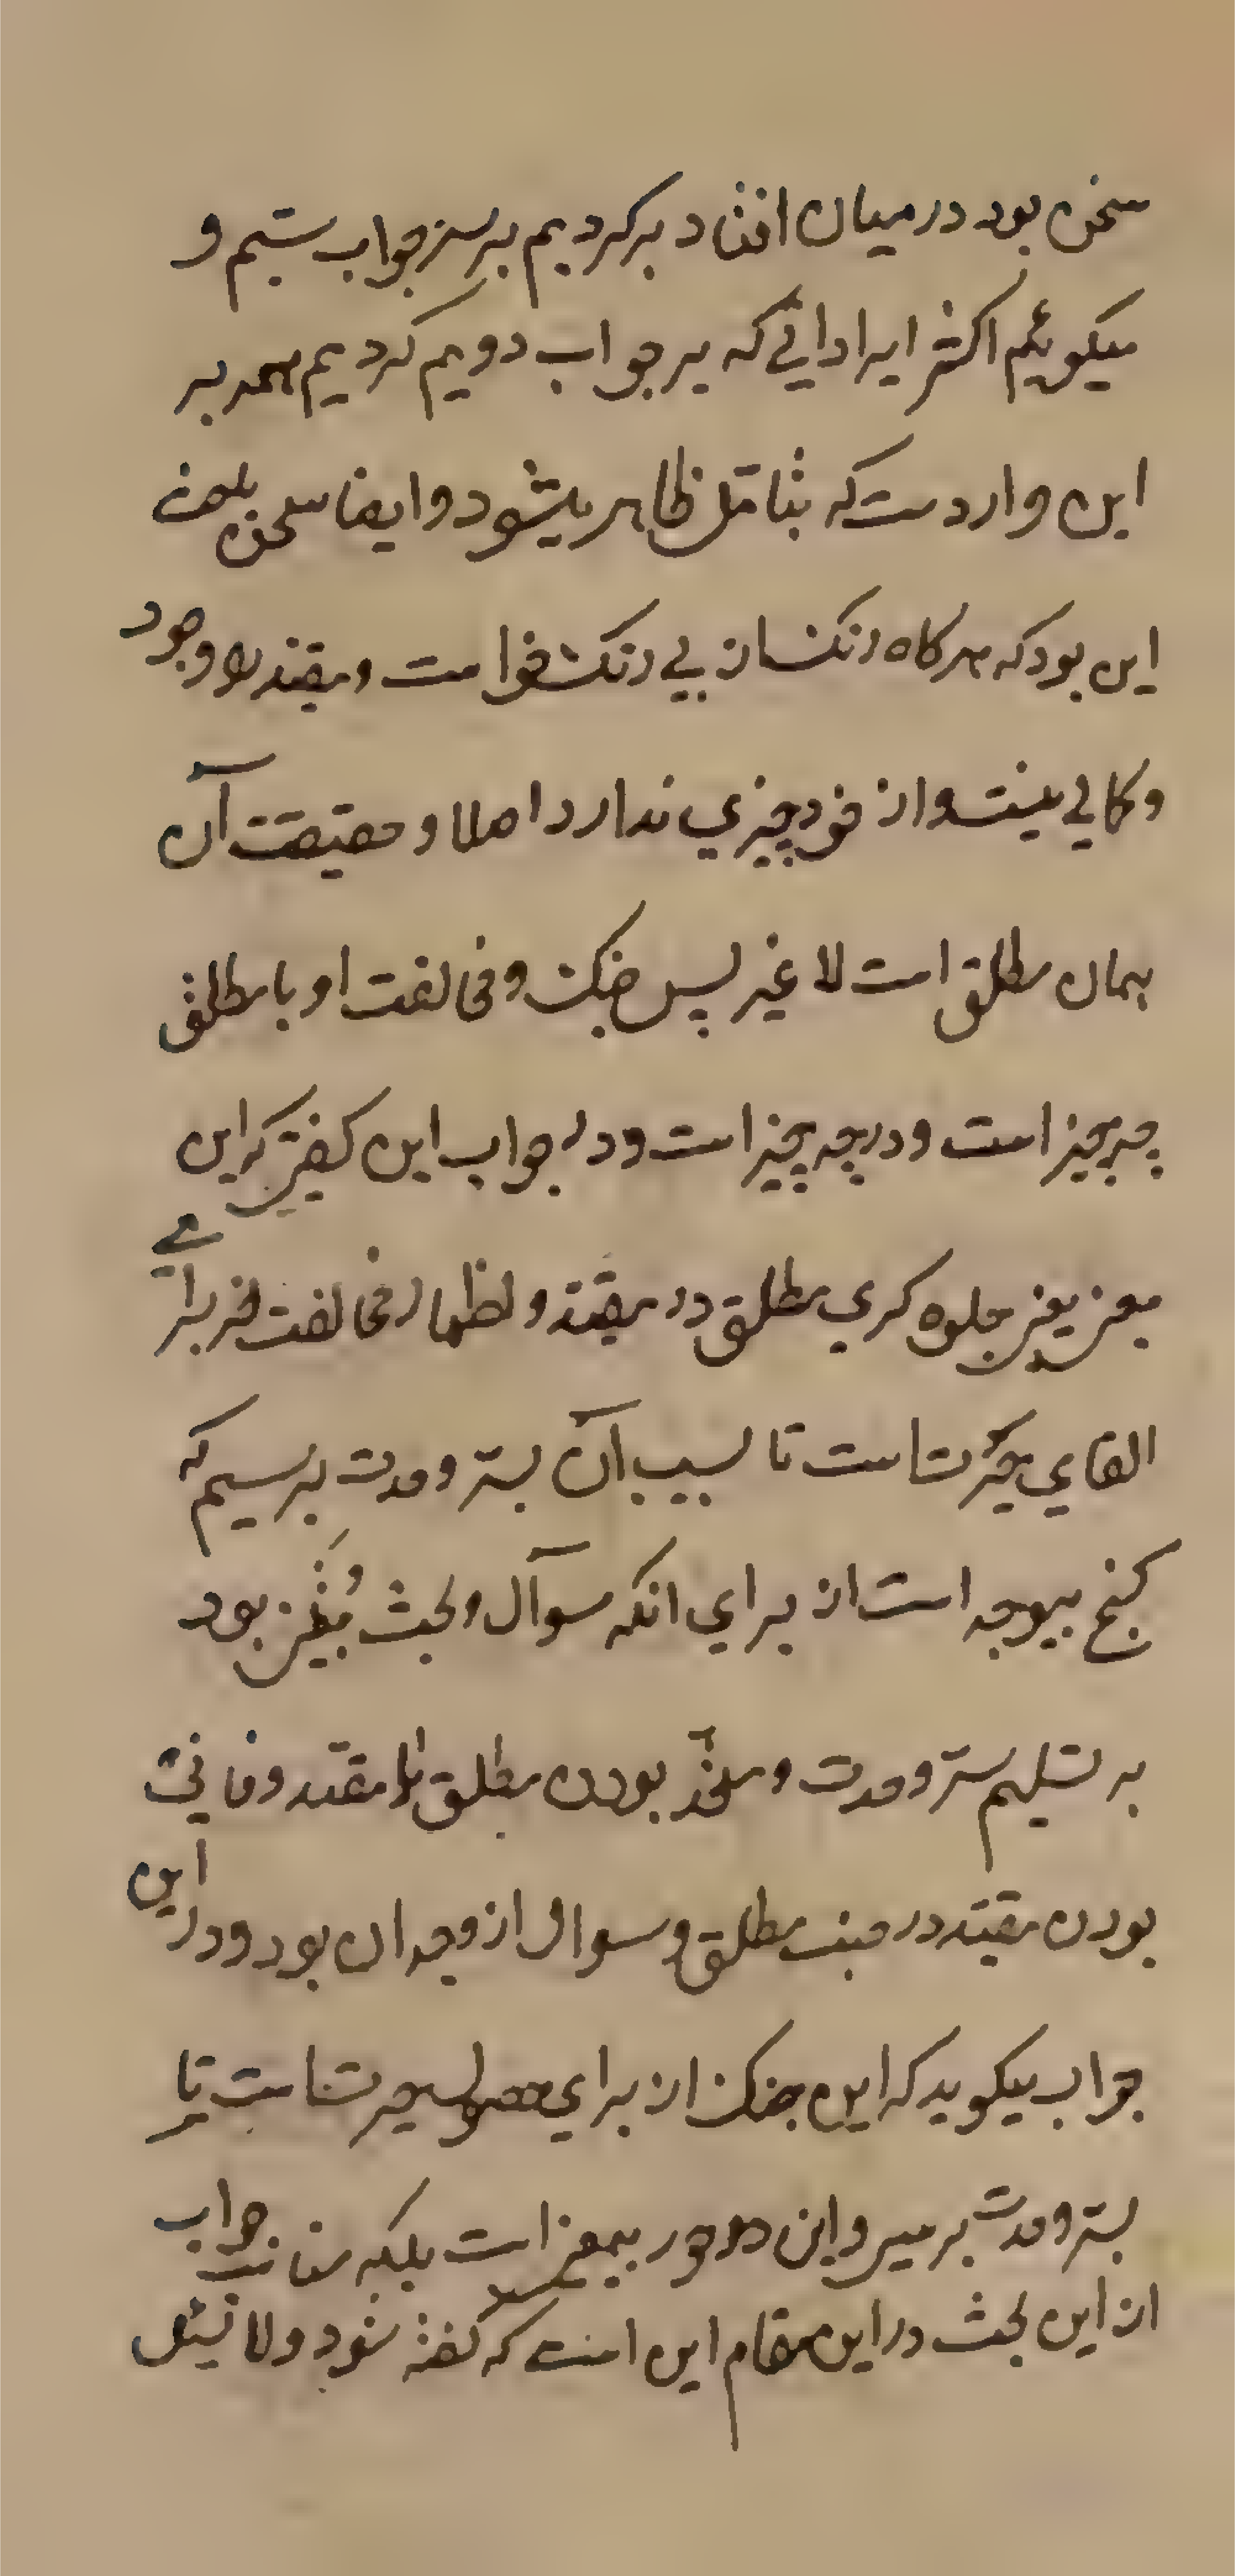 سخن بود در میان افتاد برکردیم بر سر جواب سیم و
میکوئیم اکثر ایراداتی که بر جواب دویم کردیم همه بر
این واردست که بتامل ظاهر میشود و ایضا سخن
این بود که هرکاه رنکسان بی رنک خواست و مقید را وجود
و کمالی نیست و از خود چیزی ندارد اصلا و حقیقت آن
همان مطلق است لا غیر پس جنک و مخالفت او با مطلق
چه چیز است و در چه چیز است و در جواب این کفتن که این
معنی یعنی جلوه کری مطلق در مقید و اظهار مخالفت از برای
القای حیرتست تا بسبب آن بسر وحدت برسیم که
کنج بیوجه است از برای انکه سوآل و بحث مبنی بود
بر تسلیم سر وحدت و متحد بودن مطلق با مقید و فانی
بودن مقید در جنب مطلق و سوال از وجه ان بود و در این
جواب میکوید که این جنک از برای حصول حیرتست تا
بسر وحدت برسی و این بیمعنی است بلکه مناسب جواب
از این بحث در این مقام این است که کفته شود ولا تسئل